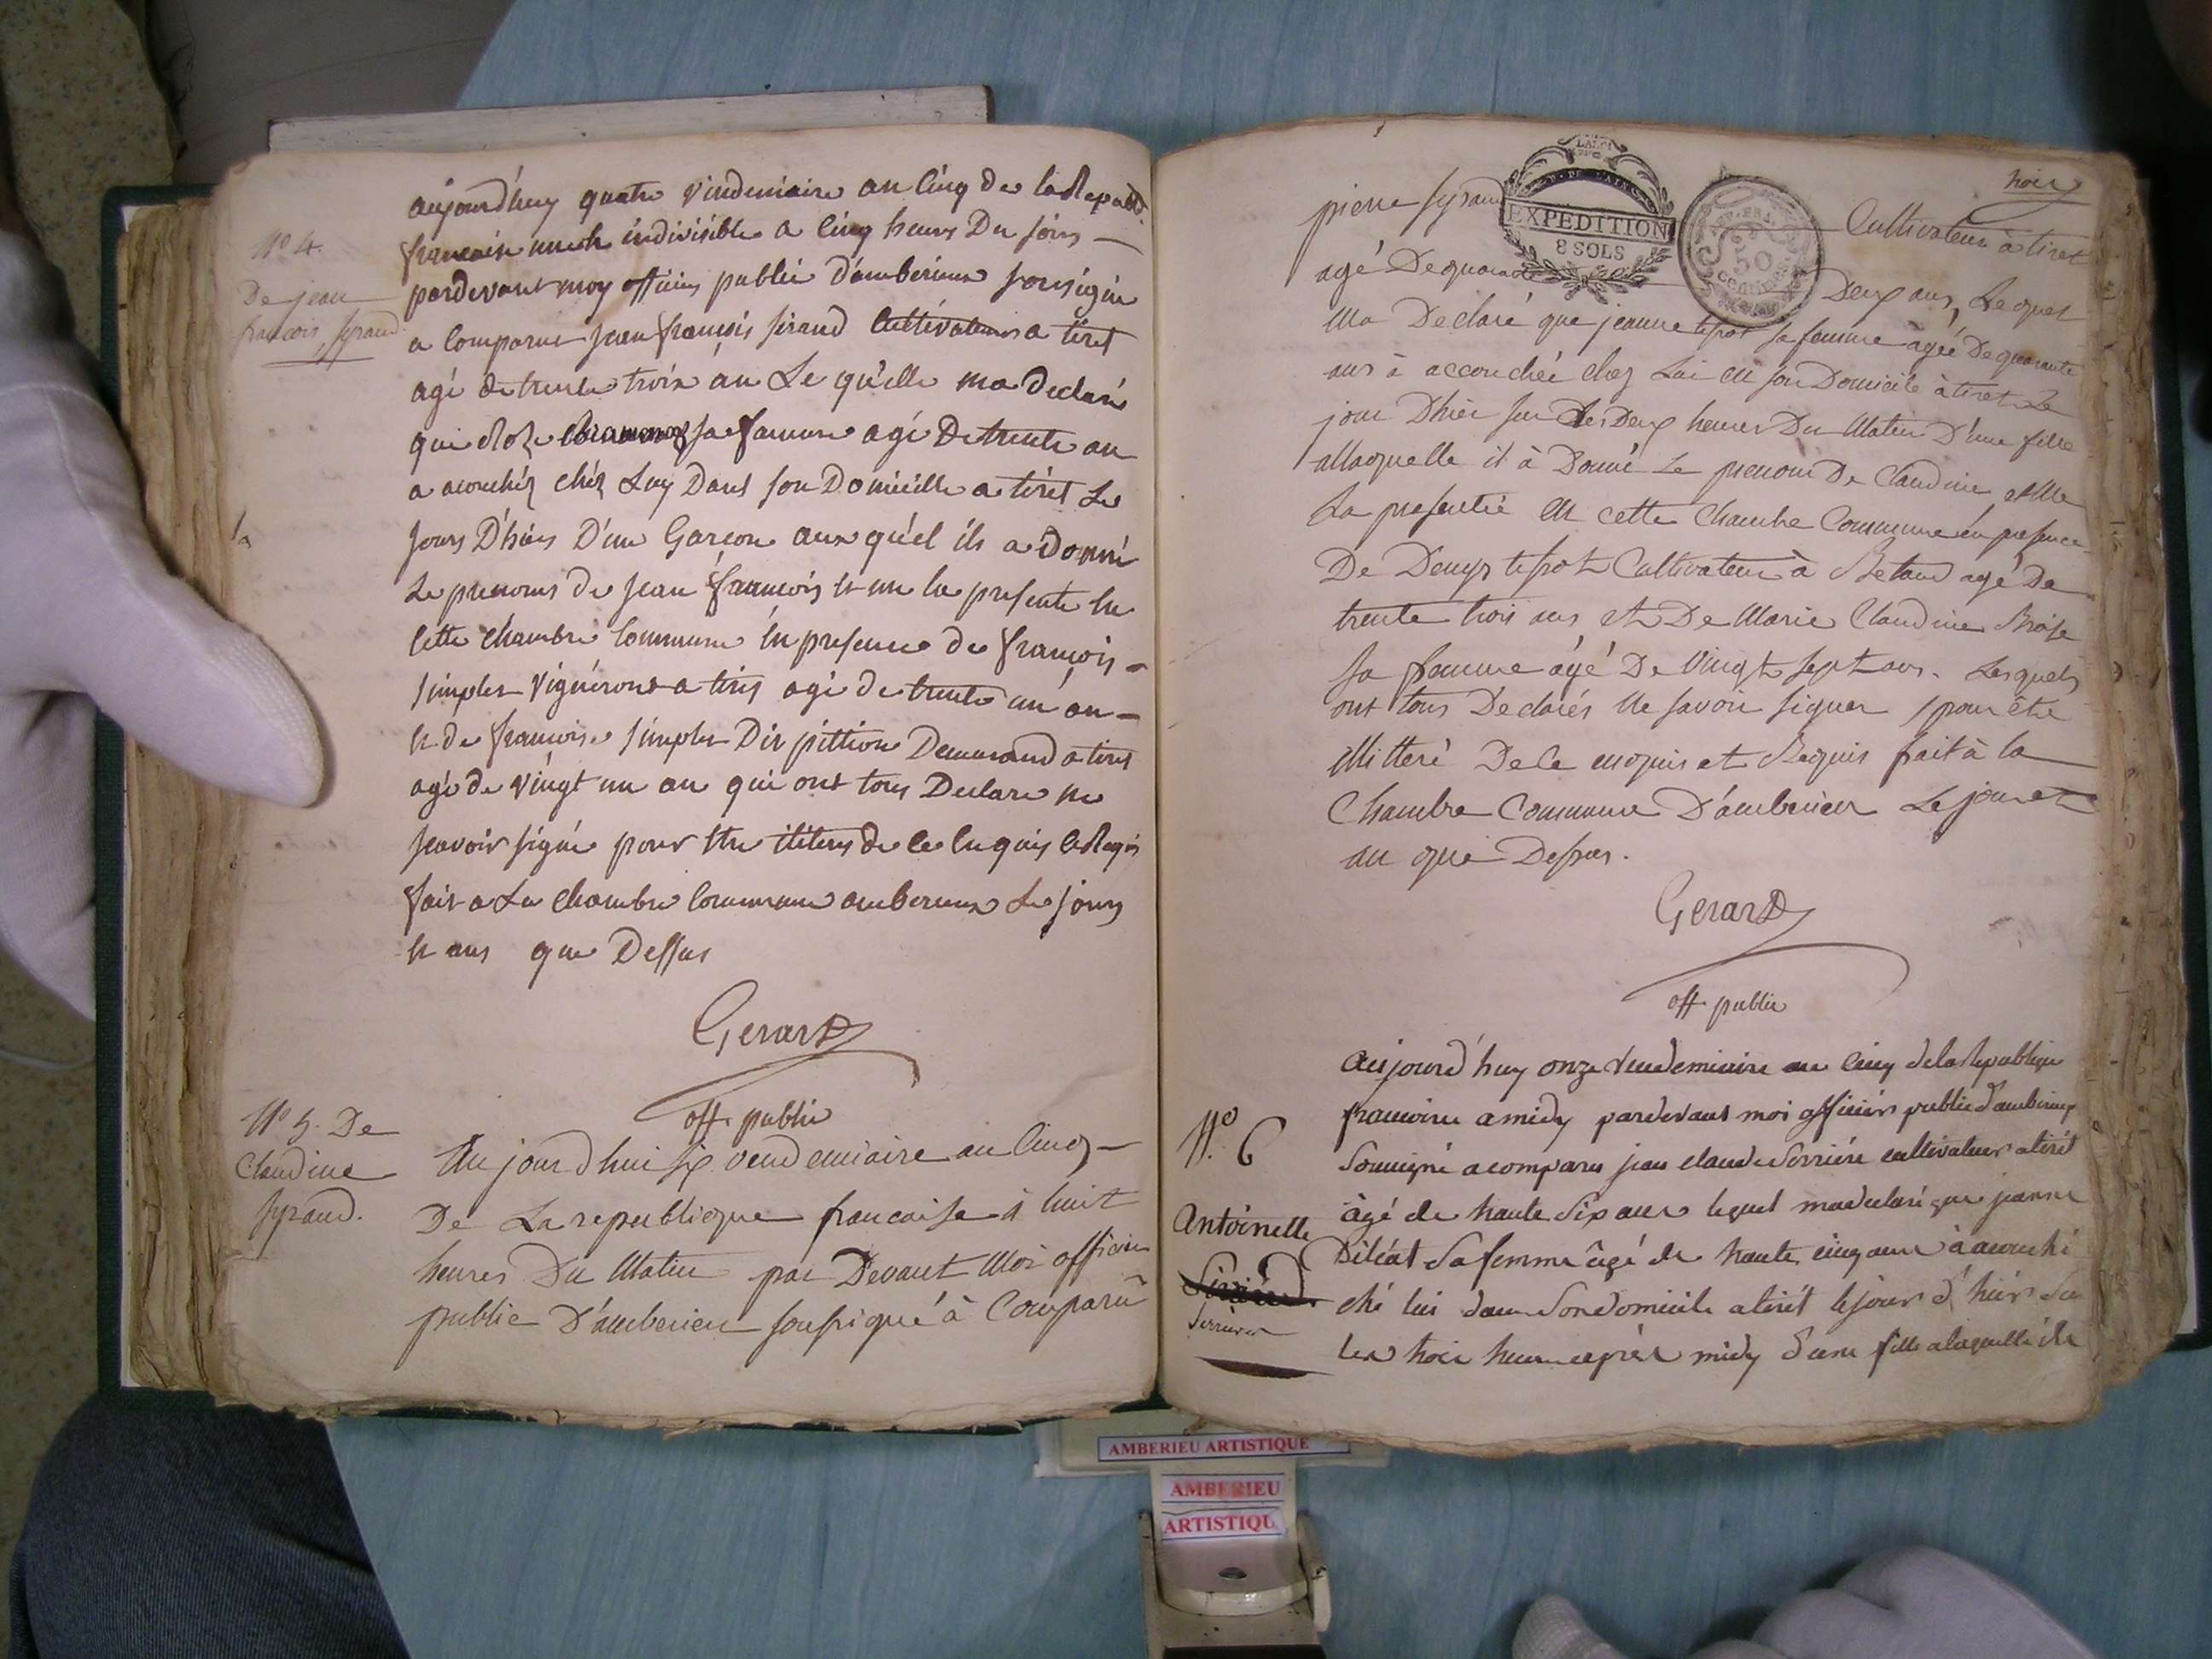 aujourd'huy quatre vindemiaire an cinq de la Republi
francaise une & indivisible a cinq heurs Du soirs —
pardevant moy officies public d'amberieux sousigni
a comparut jean françois siraud Cultivateurs a tiret
agé de trente troix an Le qu'elle ma declaré
que Roze sa famme agé De trente an
a acouchéz chéz Luy Dans son Domicille a tiret Le
jours D'hiérs D'un Garcon aux quél ils a donné
Le prenoms de jean françois et me la presente en
cette chambre Commune en presence de françois
simples vignérons a tiret agé de trente un an —
et de francoise simples Dit pittion Demeurand a tiret
agé de vingt un an qui ont tous Declare ne
scavoir signé pour de ce enquis et Requis
fait a La chambre Commune amberieux Le jours
et ans que Dessus
Gerard
off. public
N° 4.
De jean
francois, syraud
N° 5. De
Claudine
syraud.
Au jourd'hui six vendemiaire an Cinq —
De La republique francaise à huit
heures Du Matin par Devant Moi officier
public D'amberieu soussigné à Comparû
trois
pierre syraud Cultivateur à tiret
EXPÉDITION
8 SOLS
50
agé De quarante Deux ans, Lequel
Ma Declaré que jeanne tissot sa femme agée De quarante
ans à accouchée chez Lui en son Domicile à tiret Le
jour D'hier sur Les Deux heures Du Matin D'une fille
allaquelle il à Donné Le prenom De Claudine, et Me
La presentée en cette Chambre Commune en presence
De Denys tissot Cultivateur à Betand agé De
trente trois ans et De Marie Claudine
Sa femme agé De Vingt sept ans. Lesquels
ont tous Declarés Ne savoir signer pour être
Mitteré De Ce enquis et Requis fait à la
Chambre Commune D'amberieu Le jour et
an que Dessus.
Gerard
off. public
N°. 6
Antoinette
Serriere
Aujourd'huy onze Vendemiaire an cinq de la Republique
francoise a midy pardevant moi officiers public d'amberieux
Soussigné a comparu jean claude Serriére cultivateur a tirét
âgé de trente Six ans lequel ma declaré que jeanne
Diléat Sa femme âgé de trente cinq ans à acouché
ché lui dans Son domicile a tirét le jour d'hiér Su
les trois heures aprés midy d'une fille a laquelle ils
AMBERIEU ARTISTIQUE
AMBERIEU
ARTISTIQU